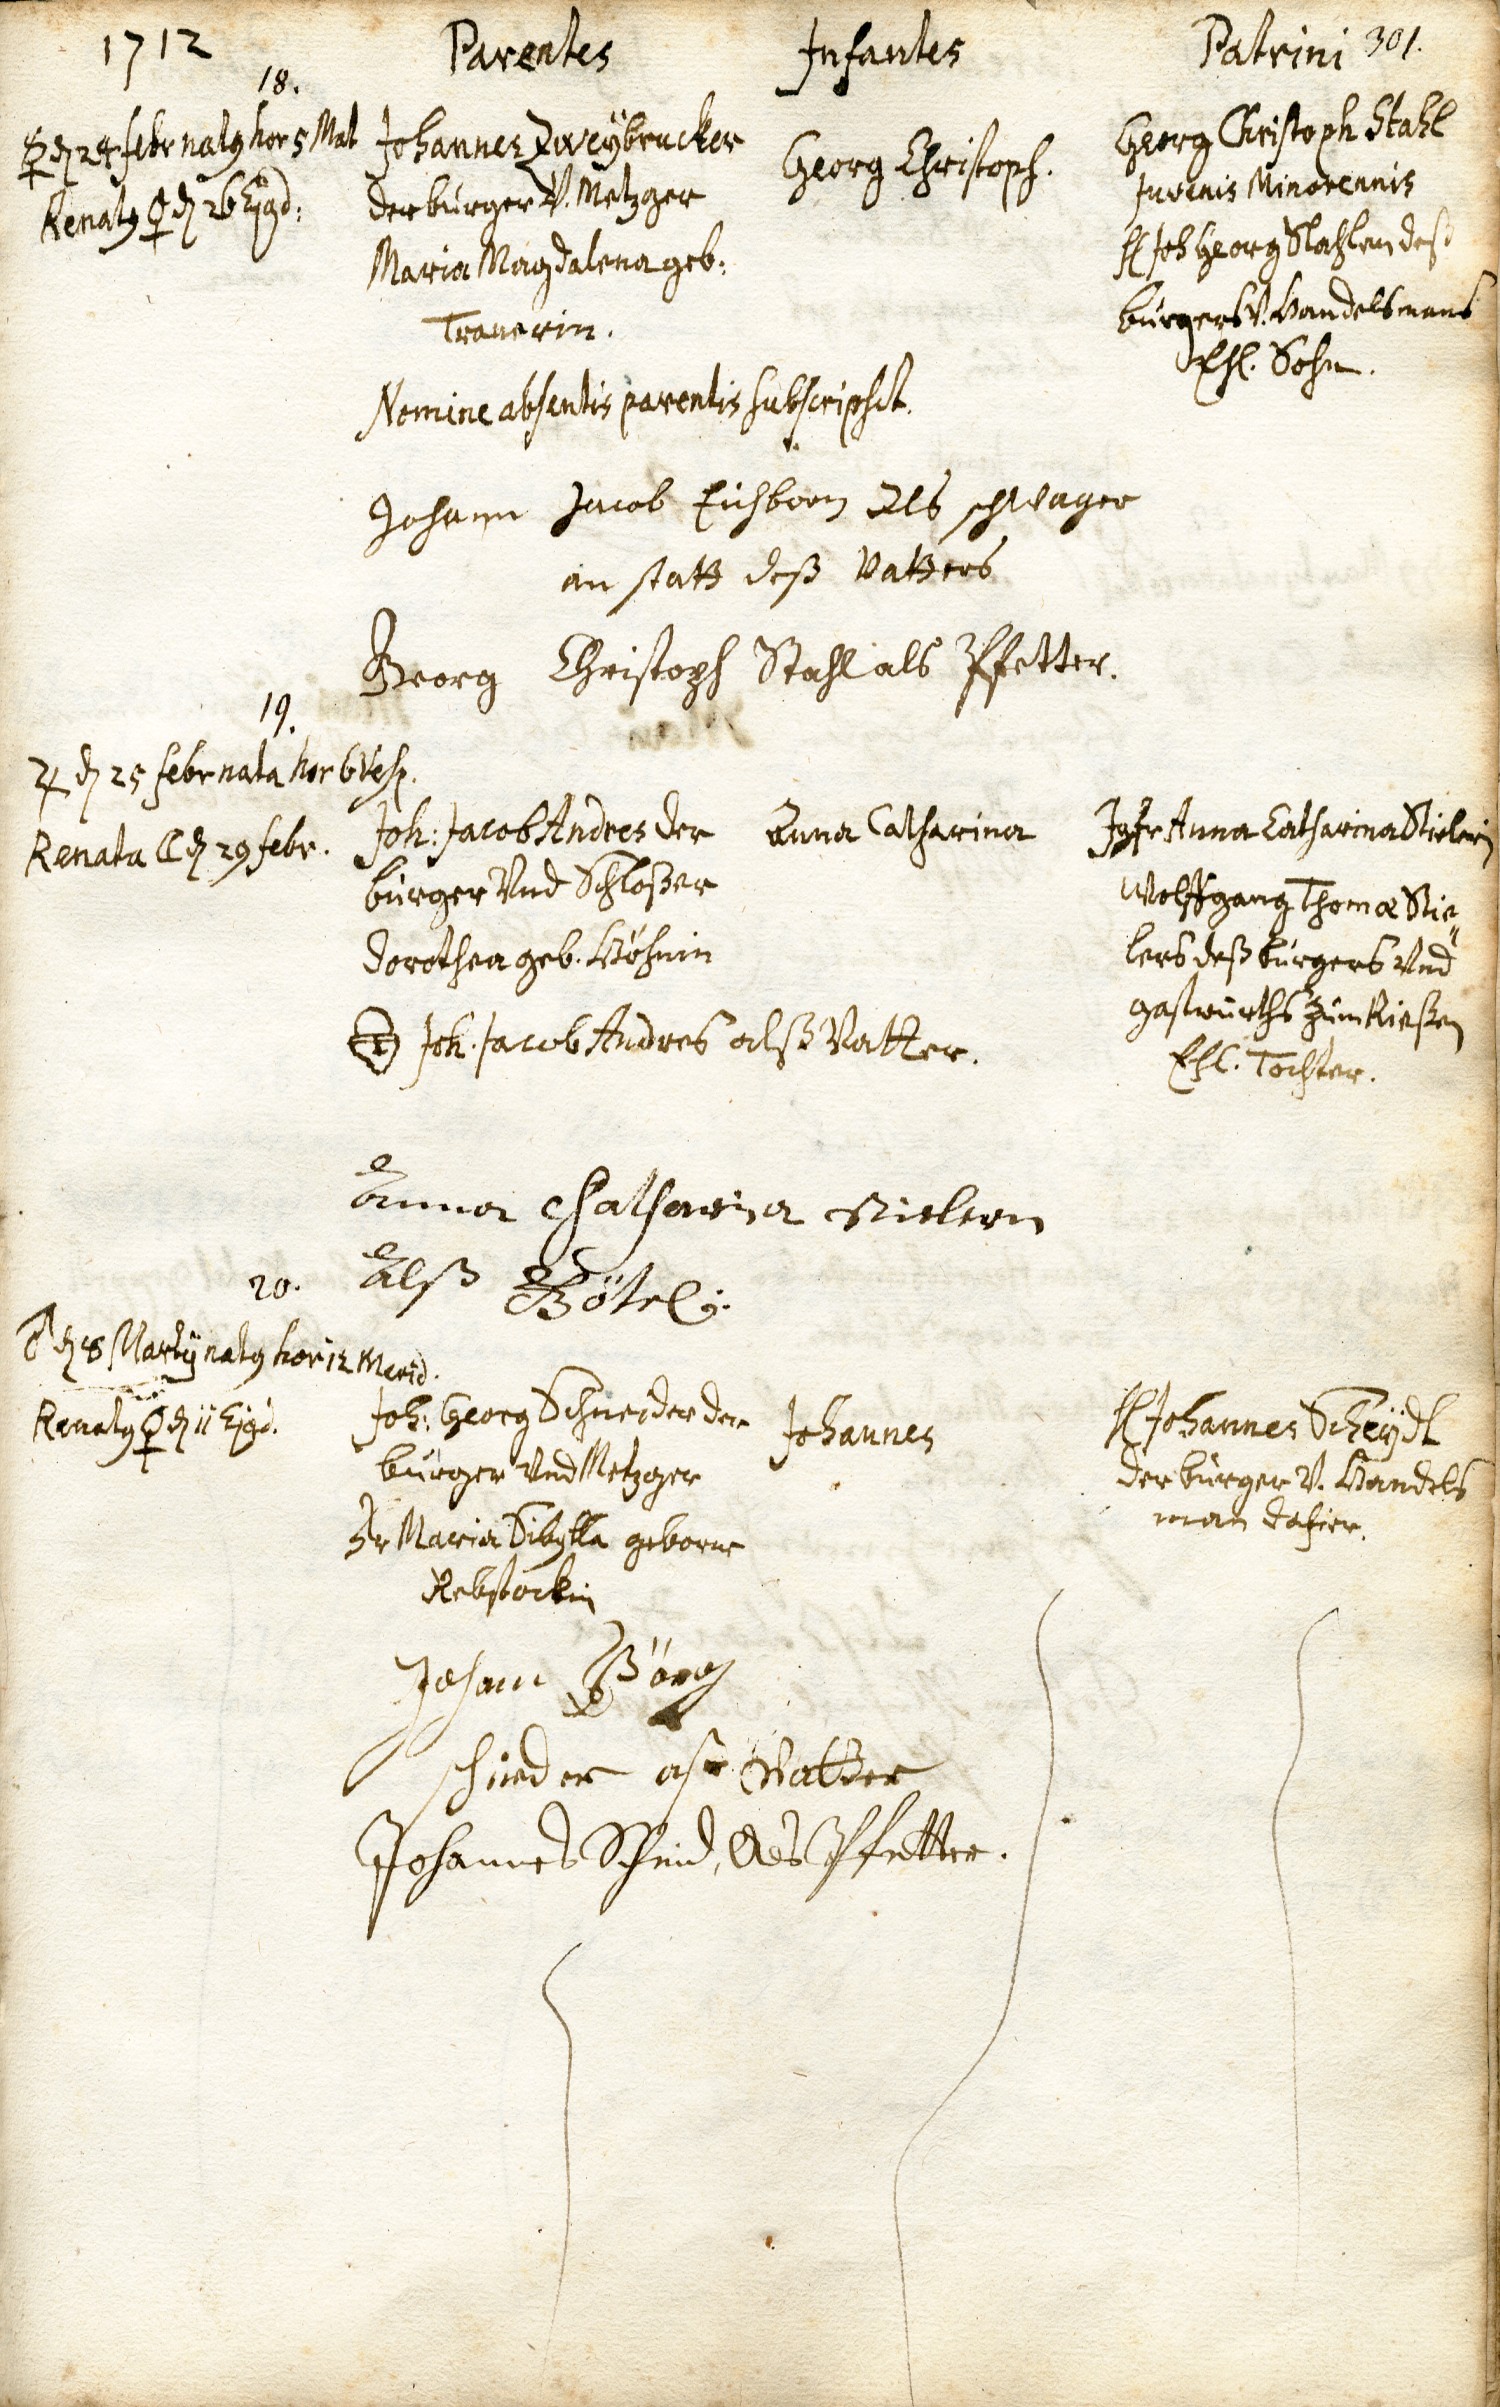 1712 Parentes Infantes Patrini 301.
18.
♀ dn 24 febr natg hor 5 Mat
Renatg ♀ dn 26 Ejgd:
Johannes Zweÿbrucker
der burger V. Metzger
Maria Magdalena geb:
Trauerin.
Georg Christoph.
Georg Christoph Stahl
Juvenis Minorennis
H Joh Georg Stahlen deß
burgers V. Handelsmans
Ehl. Sohn.
Nomine absentis parentis subscripsit.
Johann Jacob Eichborn Als schwager
an statt deß Vatters
Georg Christoph Stahl als Pfetter.
19.
♃ dn 25 febr nata hor 6 Vesp.
Renata ☾ dn 29 febr.
Joh: Jacob Andres der
burger Vnd Schloßer
Dorothea geb. Höhnin
Anna Catharina
Jgfr Anna Catharina Stielerin
Wolffgang Thomæ Stie„
lers deß burgers Vnd
gastwürths zum Rießen
Ehl. Tochter.
Joh. Jacob Andres alß Vatter.
Anna Chatharina Stielern
Alß Götel:
20.
♂ dn 8 Martÿ natg hor 12 Merid.
Renatg ♀ dn 11 Ejgd.
Joh: Georg Schneider der
burger Vnd Metzger
Fr Maria Sibÿlla geborne
Rebstockin
Johannes
H Johannes Scheÿdt
der burger V. Handels
man dahier.
Johann Görg
schneder als Vatter
Johannes Scheid, Als Pfetter.